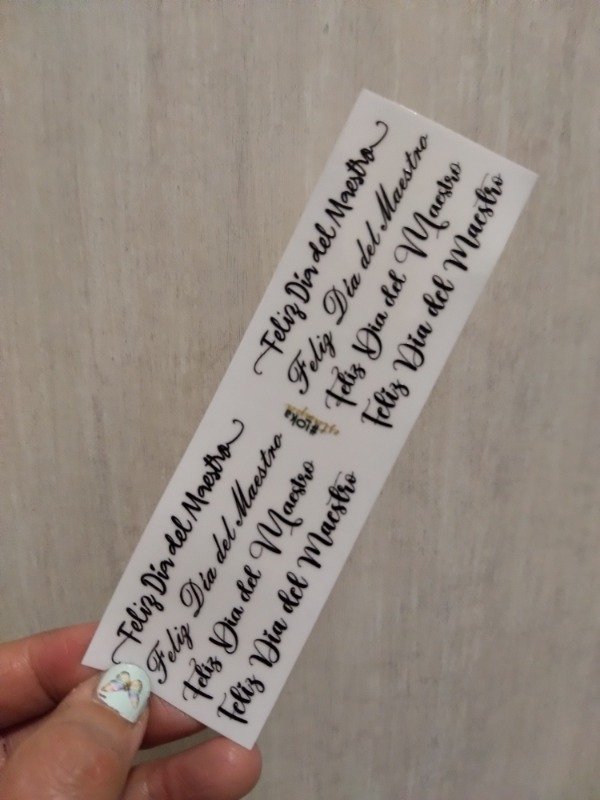 Feliz Día del Maestro
Feliz Día del Maestro
Feliz Dia del Maestro
Feliz Dia del Maestro
#loka
Feliz Día del Maestro
Feliz Día del Maestro
Feliz Dia del Maestro
Feliz Dia del Maestro